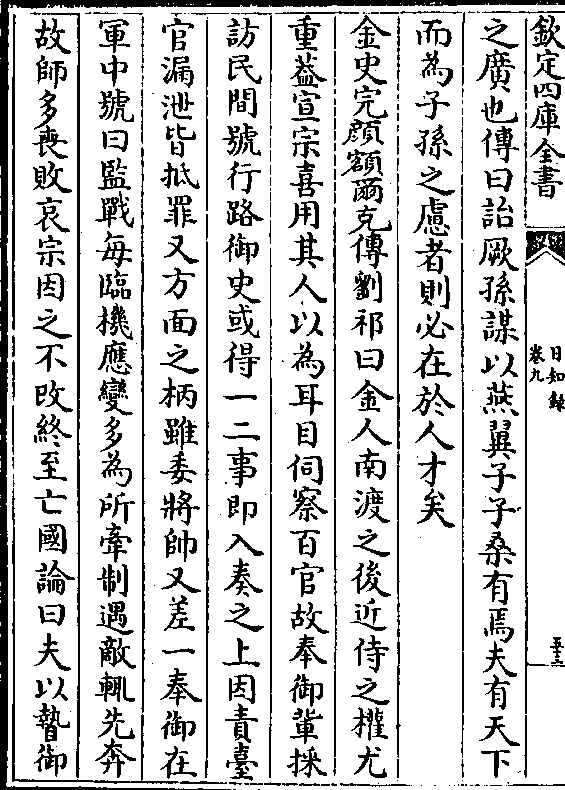 欽定四庫全書
日知錄
卷九
五十三
之廣也傳曰詒厥孫謀以燕翼子子桑有焉夫有天下
而為子孫之慮者則必在於人才矣
金史完顔額爾克傳劉祁曰金人南渡之後近侍之權尤
重葢宣宗喜用其人以為耳目伺察百官故奉御輩採
訪民間號行路御史或得一二事即入奏之上因責臺
官漏泄皆抵罪又方面之柄雖委將帥又差一奉御在
軍中號曰監戰每臨機應變多為所牽制遇敵輒先奔
故師多喪敗哀宗因之不改終至亡國論曰夫以暬御